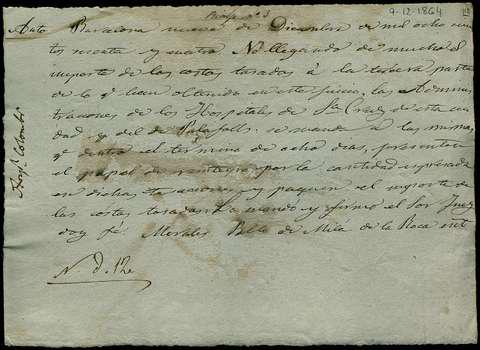 9-12-1864
Auto Barcelona nueve de Diciembre de mil ocho cien
tos sesenta y cuatro No llegando de mucho el
importe de las costas tasadas á la tercera parte
de lo qe han obtenido en este juicio, las Adminis
traciones de los Hospitales de Sta Cruz de esta ciu
dad y del de Palafolls se manda á las mismas
qe dentro el termino de ocho dias, presenten
el papel de reintegro por la cantidad espresada
en dichas tasaciones y paguen el importe de
las costas tasadas Lo mando y firmó el Sor Juez
doy fé. Morales Pablo de Mila de la Roca esno
N. d. 12